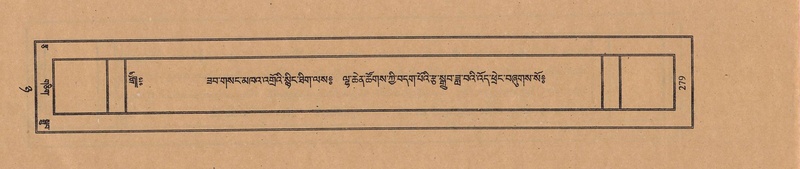 ཟབ་གསང་མཁའ་འགྲོའི་སྙིང་ཐིག་ལས༔ ལྷ་ཆེན་ཚོགས་ཀྱི་བདག་པོའི་རྩ་སྒྲུབ་ཟླ་བའི་འོད་ཕྲེང་བཞུགས་སོ༔
279